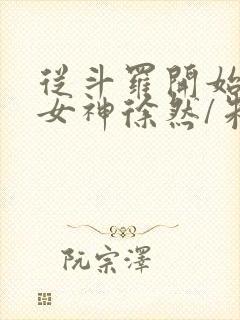 從斗羅開始
女神徐然/朱
阮宗澤